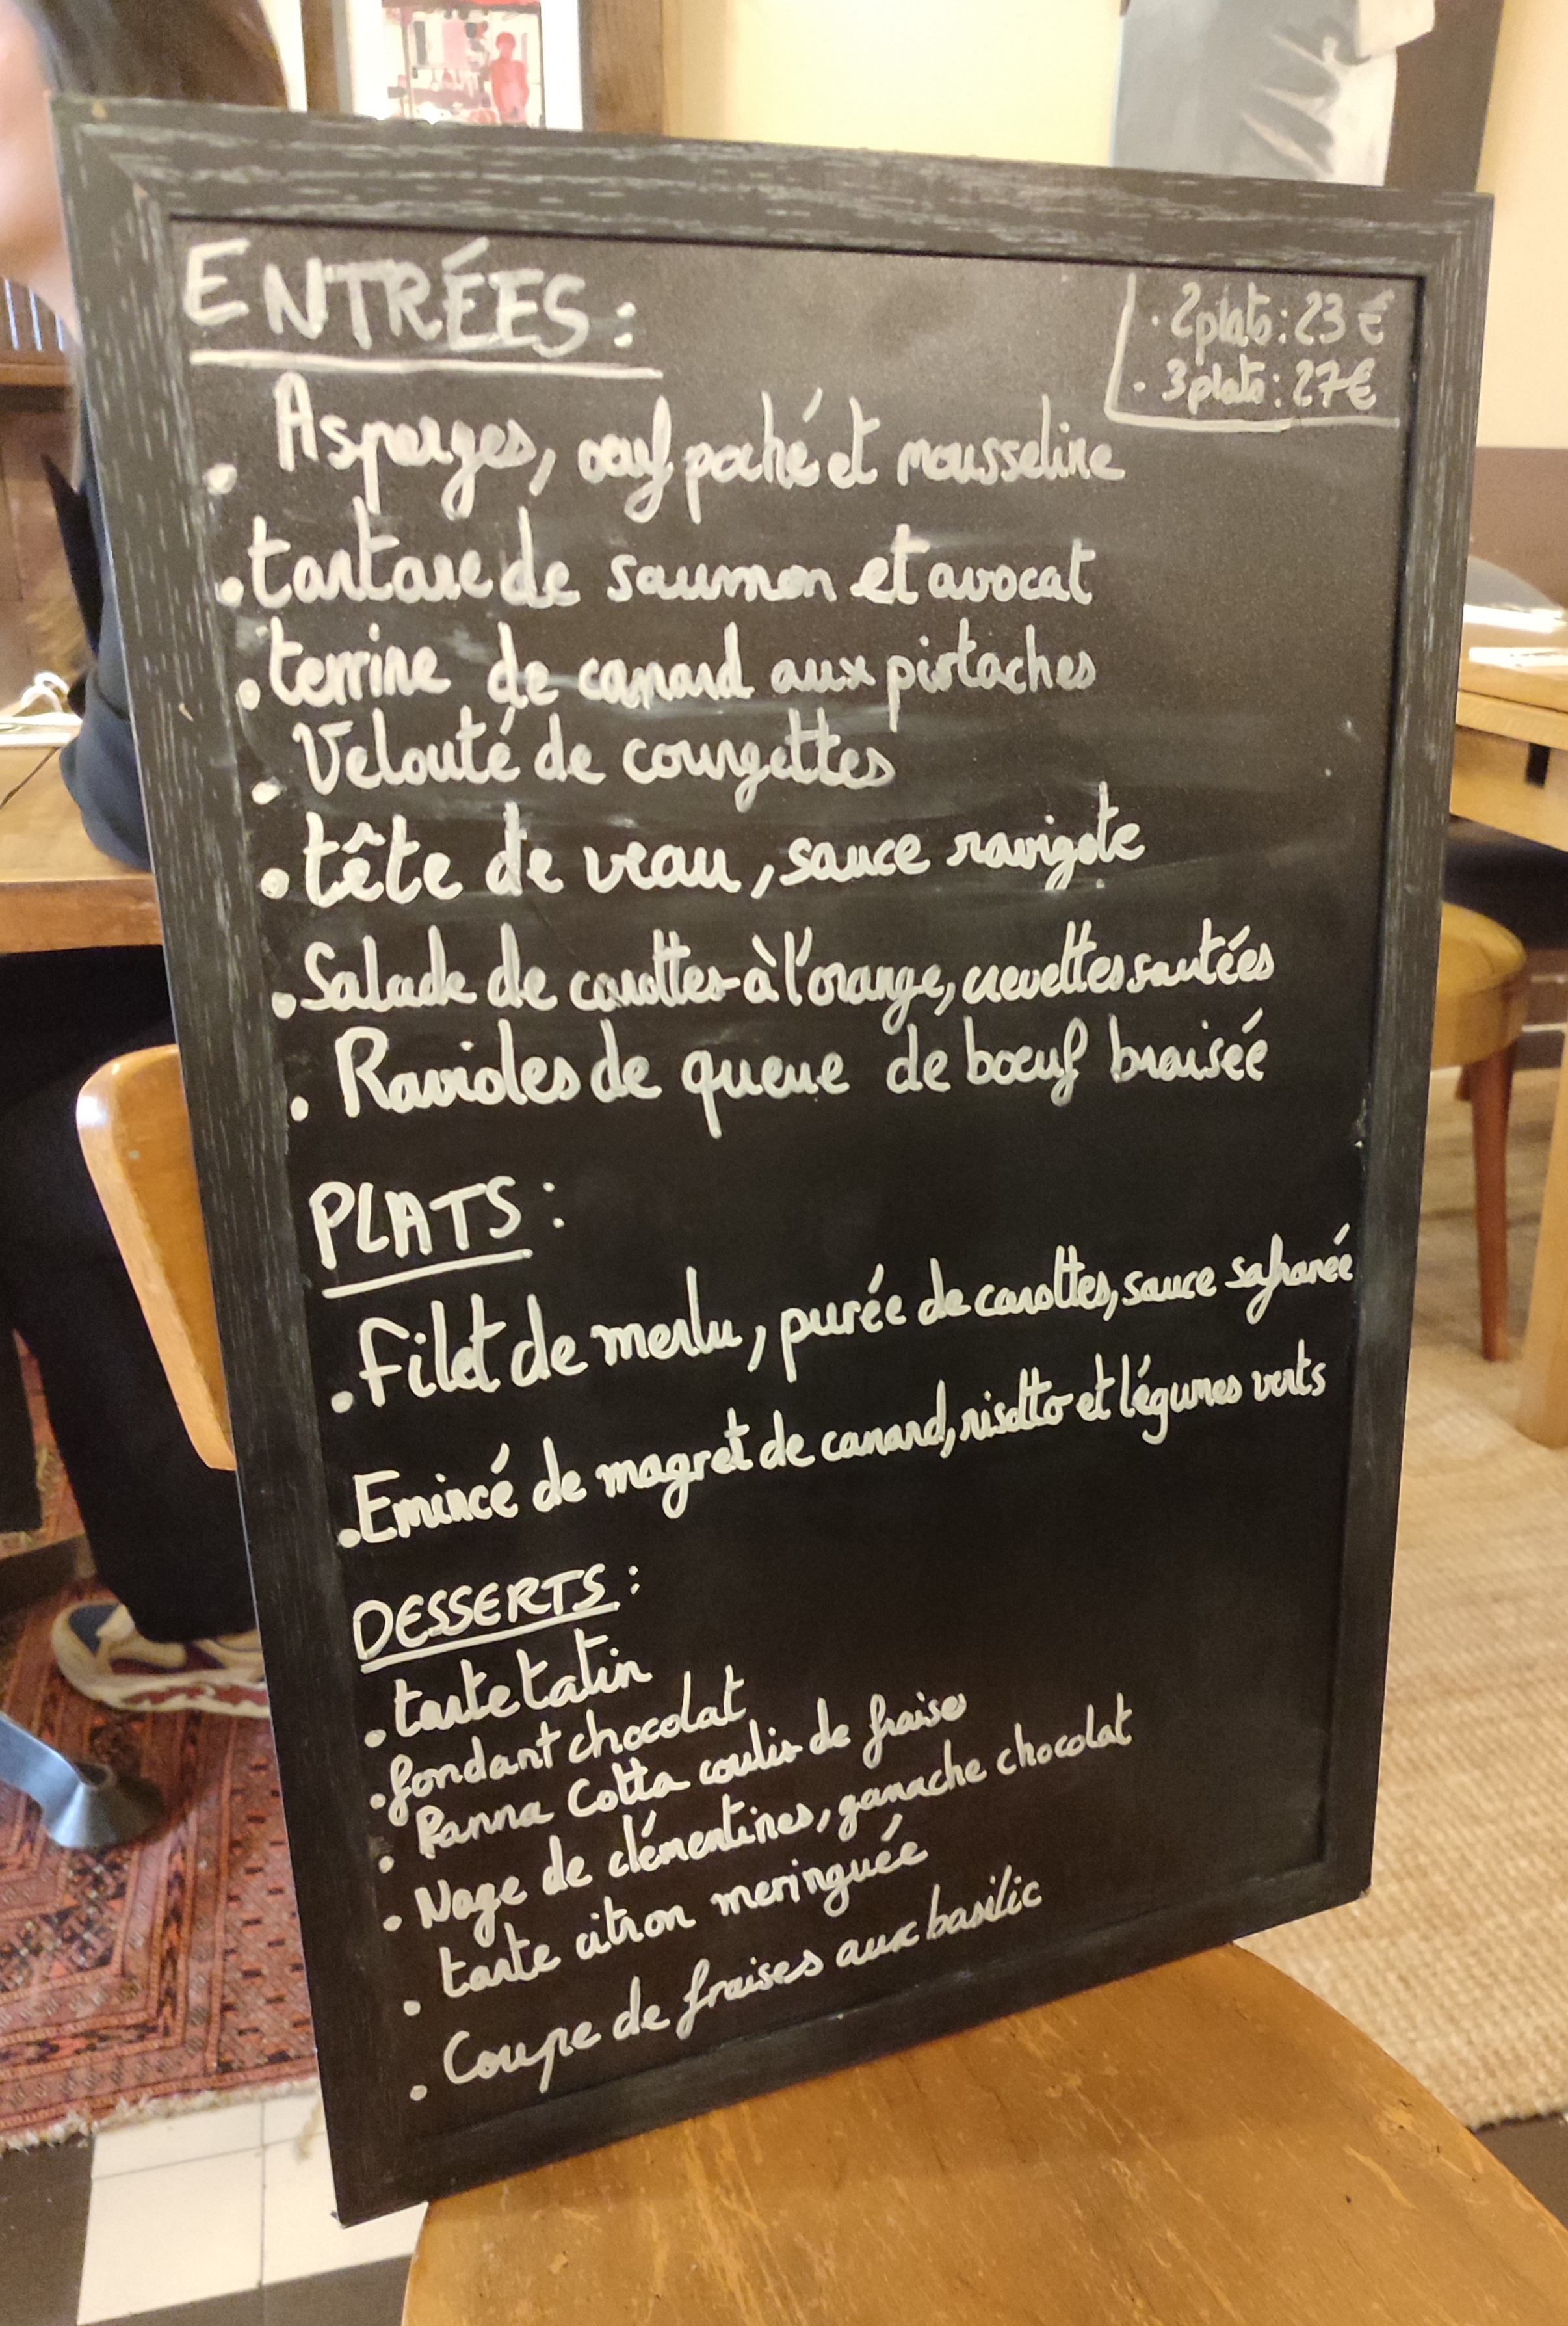 ENTRÉES :
· 2 plats : 23 €
· 3 plats : 27 €
. Asperges, oeuf poché et mousseline
. tartare de saumon et avocat
. terrine de canard aux pistaches
. Velouté de courgettes
. tête de veau, sauce ravigote
. Salade de carottes à l'orange, crevettes sautées
. Ravioles de queue de boeuf braisée
PLATS :
. Filet de merlu, purée de carottes, sauce safranée
. Emincé de magret de canard, risotto et légumes verts
DESSERTS :
. tarte tatin
. fondant chocolat
. Panna Cotta coulis de fraise
. Nage de clémentines, ganache chocolat
. tarte citron meringuée
. Coupe de fraises aux basilic